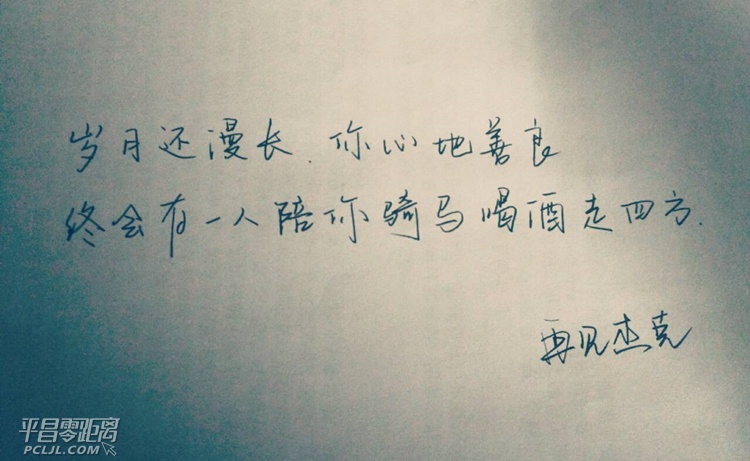 岁月还漫长.你心地善良
终会有一人陪你骑马喝酒走四方.
再见杰克
平昌零距离
PCLJL.COM